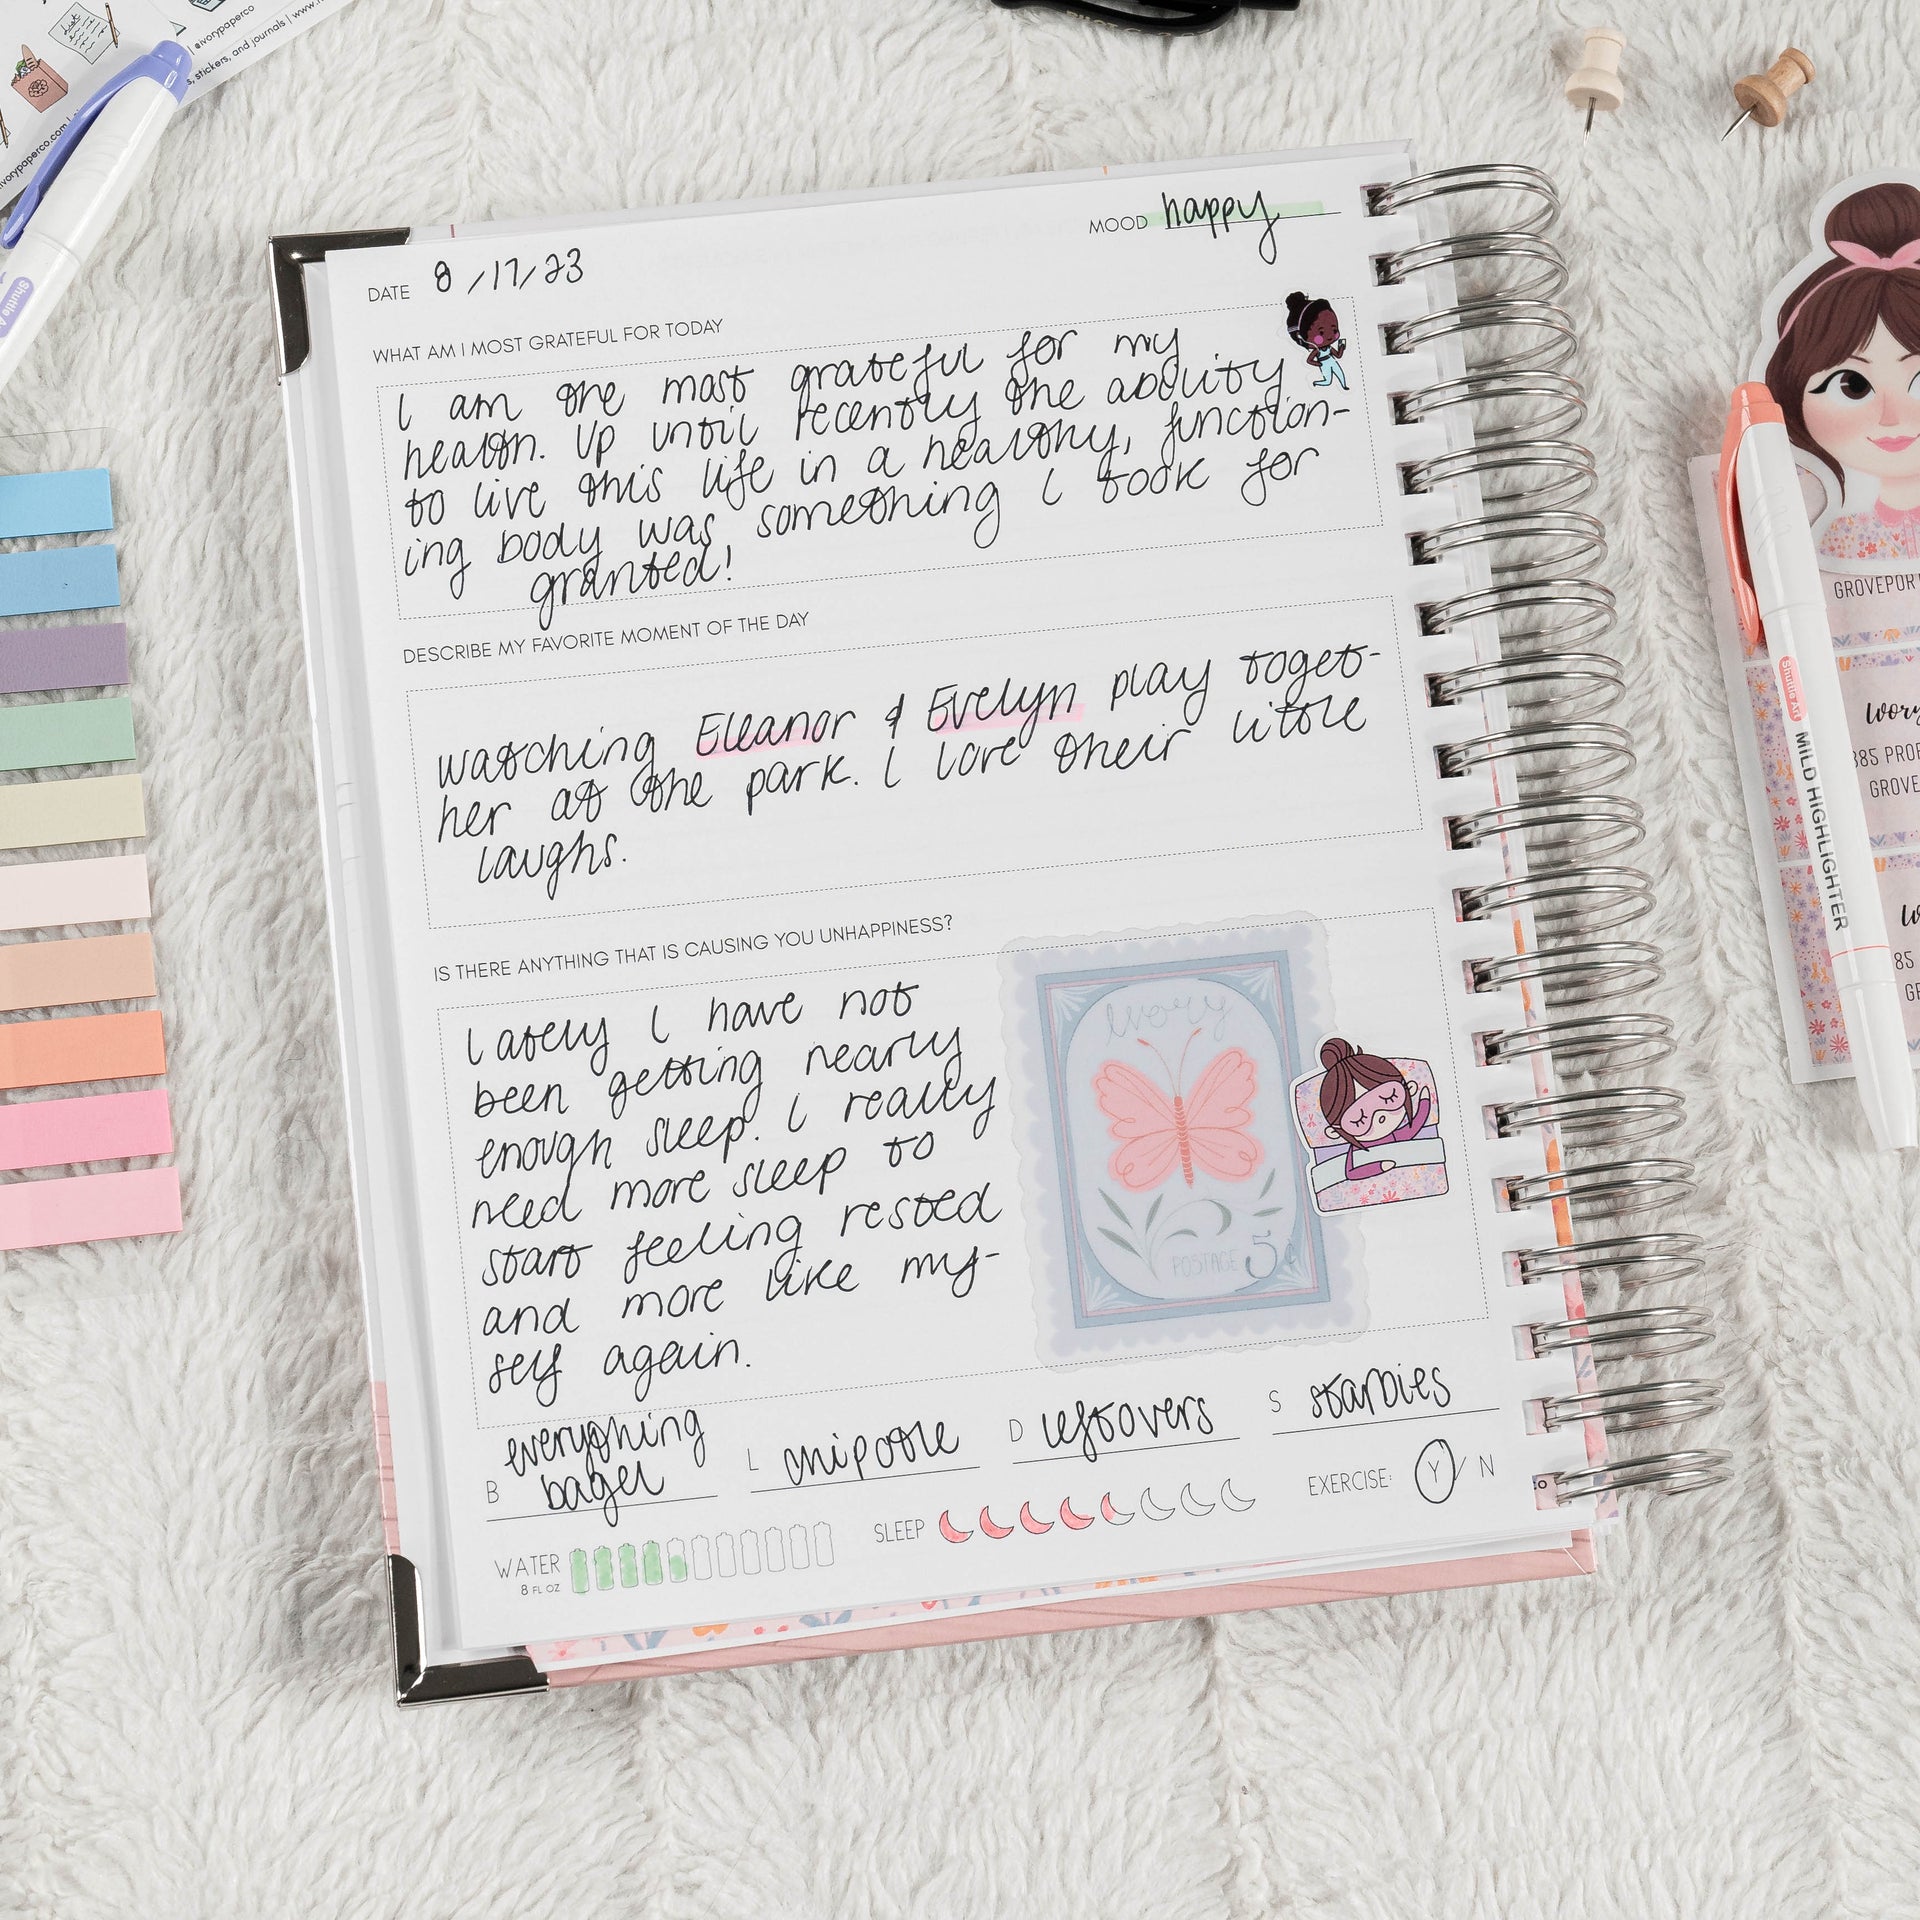 @ivorypaperco | www.
s, stickers, and journals
ivorypaperco.com |
Shuttle A
MOOD happy
DATE 8/17/23
WHAT AM I MOST GRATEFUL FOR TODAY
I am the most grateful for my
health. Up until recently the ability
to live this life in a healthy, function-
ing body was something I took for
granted!
DESCRIBE MY FAVORITE MOMENT OF THE DAY
watching Eleanor & Evelyn play toget-
her at the park. I love their little
laughs.
IS THERE ANYTHING THAT IS CAUSING YOU UNHAPPINESS?
Lately I have not
been getting nearly
enough sleep. I really
need more sleep to
start feeling rested
and more like my-
self again.
Ivory
POSTAGE 5¢
B everything
bagel
L chipotle
D leftovers
S starbies
WATER
8 FL OZ
SLEEP
EXERCISE: Y / N
Shuttle Art
MILD HIGHLIGHTER
GROVEPOR
Ivory
385 PROF
GROVE
85